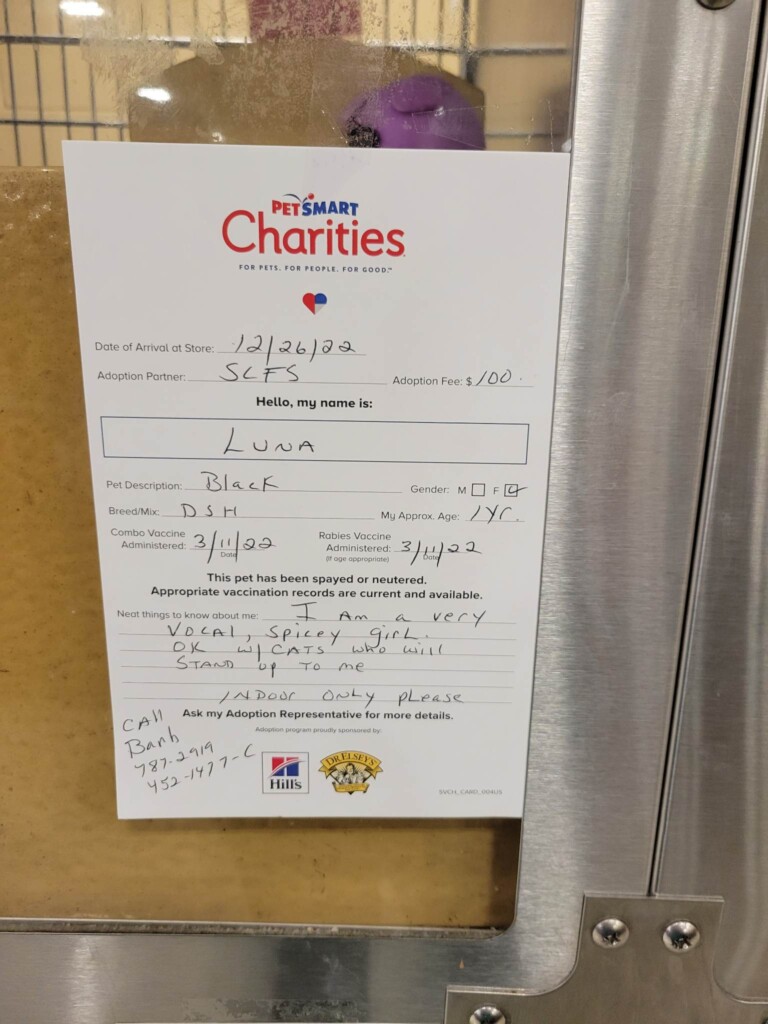 PETSMART
Charities
FOR PETS. FOR PEOPLE. FOR GOOD.™
Date of Arrival at Store: 12/26/22
Adoption Partner: SCFS Adoption Fee: $ 100.
Hello, my name is:
LUNA
Pet Description: Black Gender: M F
Breed/Mix: DSH My Approx. Age: 1 yr.
Combo Vaccine Administered: 3/11/22 Rabies Vaccine Administered: 3/11/22
Date (If age appropriate) Date
This pet has been spayed or neutered.
Appropriate vaccination records are current and available.
Neat things to know about me: I Am a very
VOCAL, Spicey girl.
OK w/ CATS who will
STAND up To me
INDOOR ONLY please
Ask my Adoption Representative for more details.
Adoption program proudly sponsored by:
CAll
Barb
787-2919
452-1477-C
Hill's
DR ELSEY'S